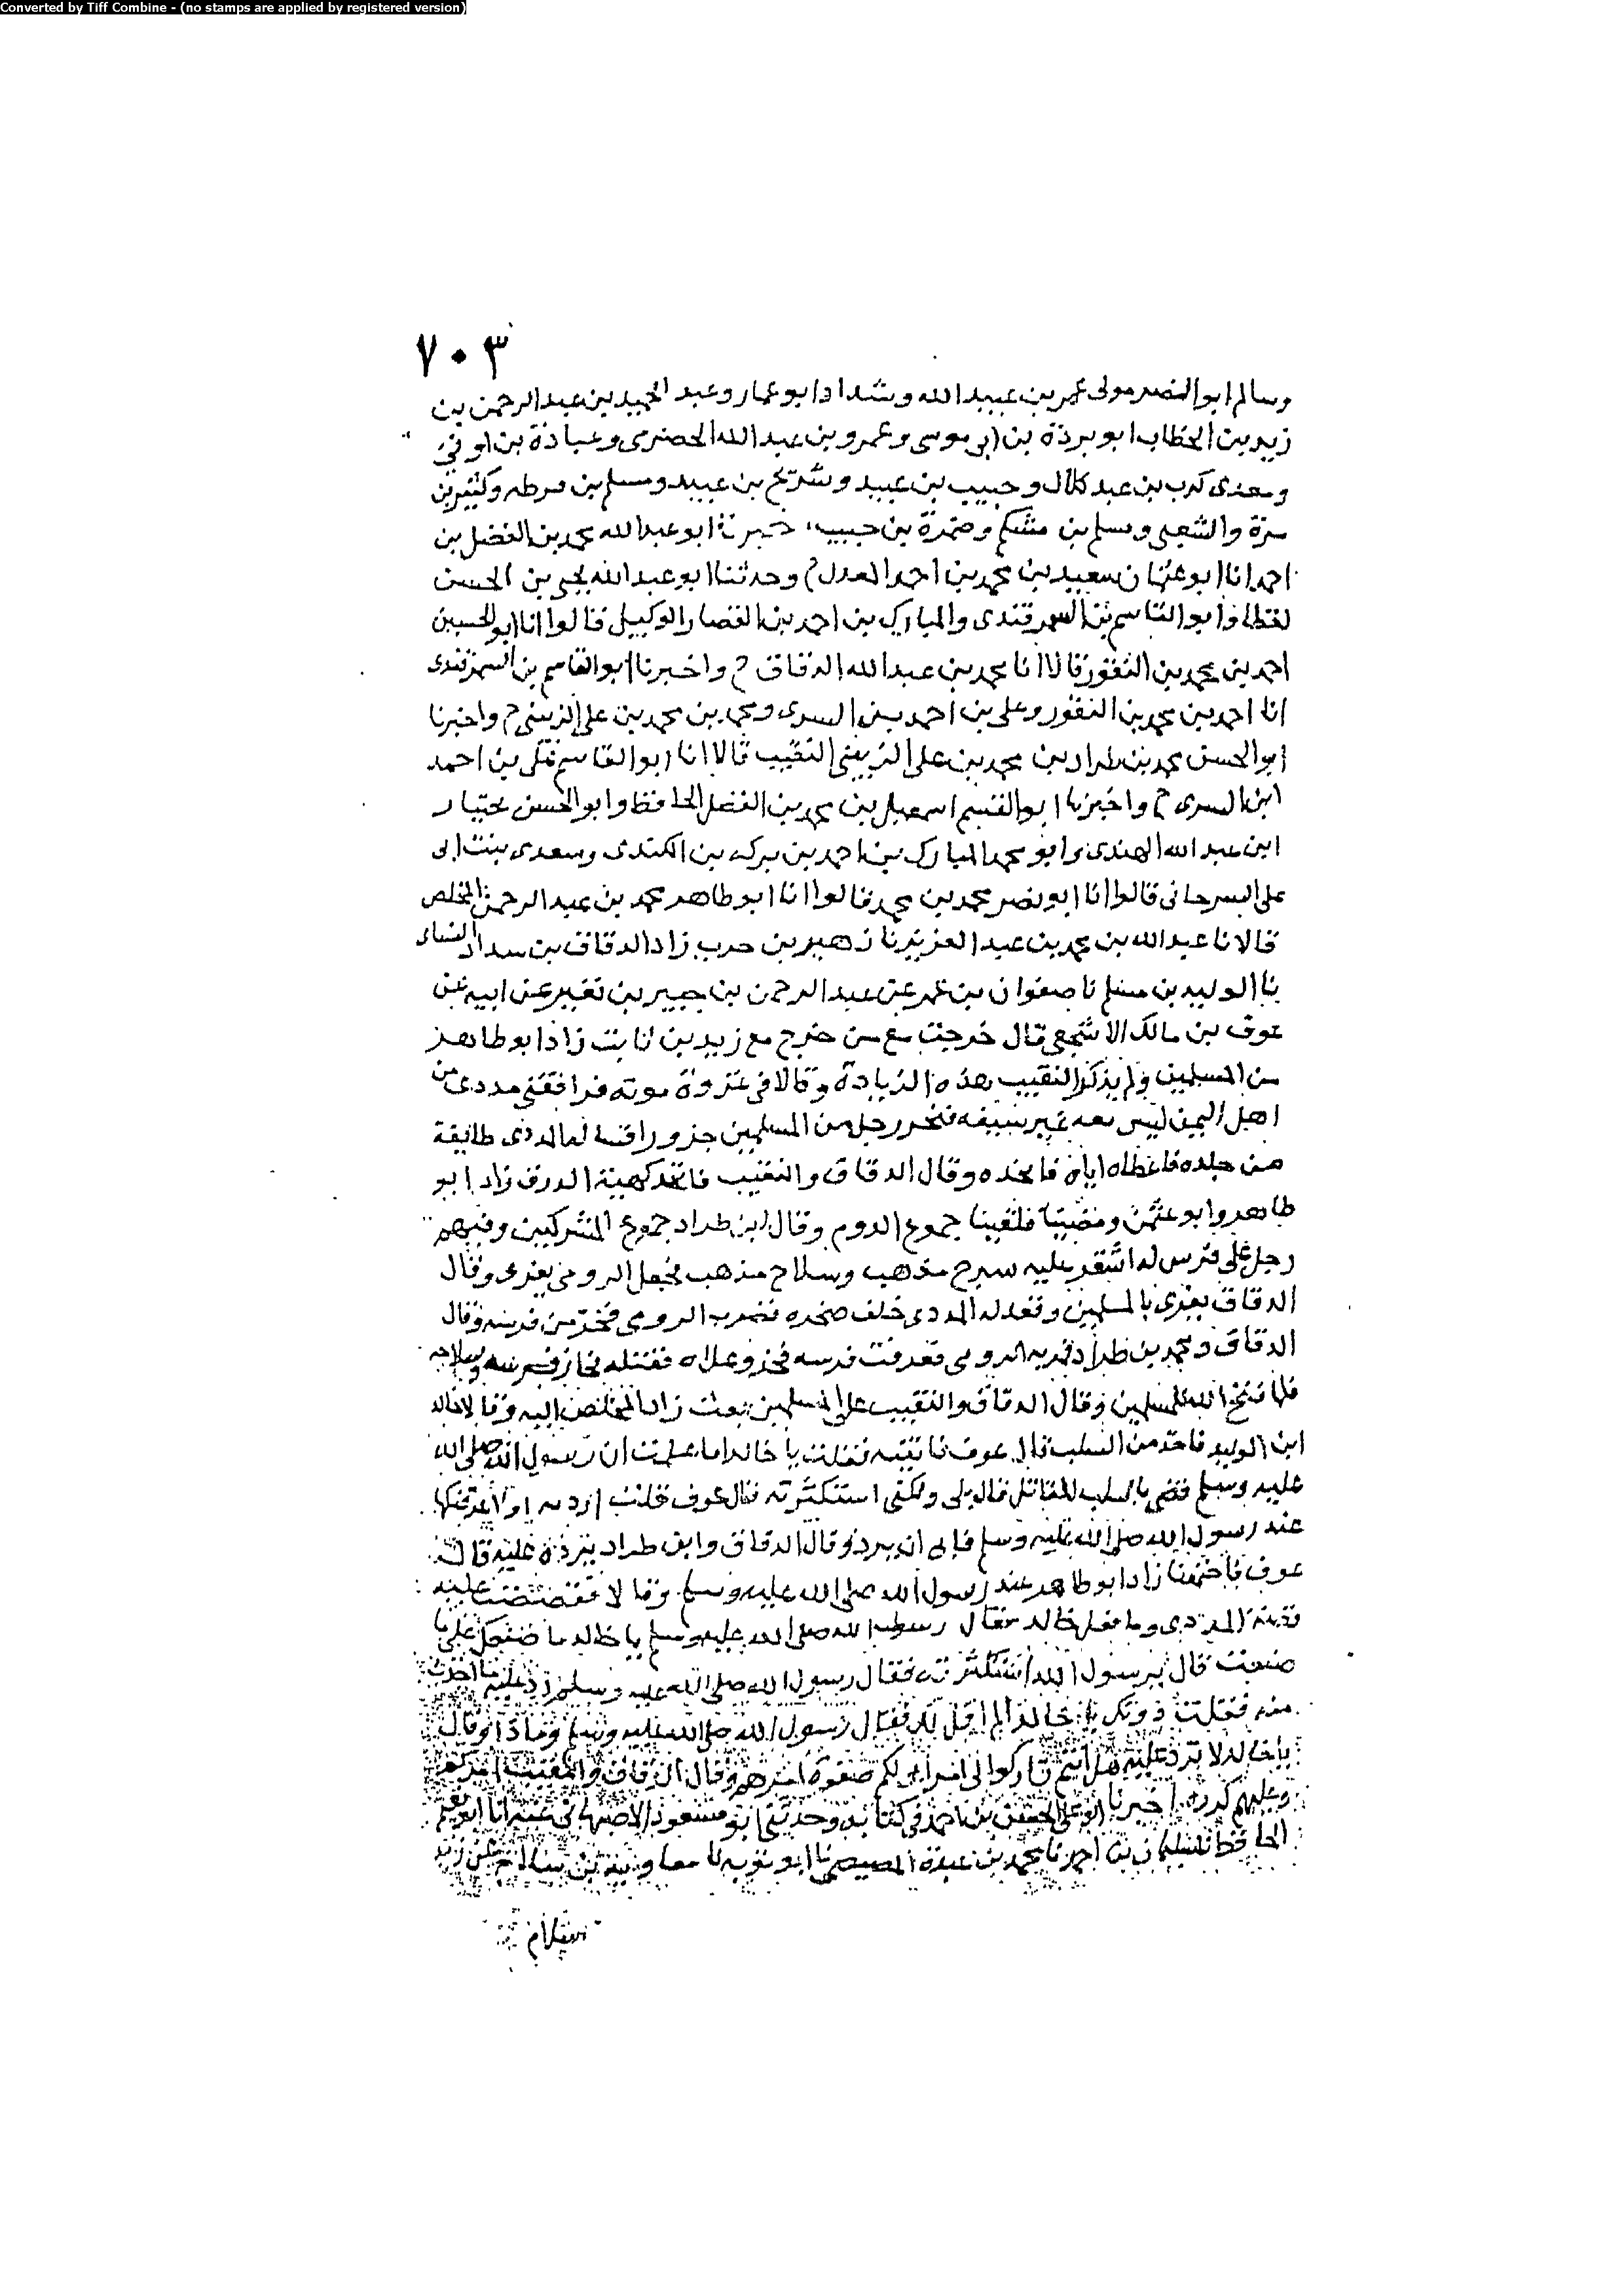 Converted by Tiff Combine - (no stamps are applied by registered version)
٧٠٣
وسالم ابو النضر مولى عمر بن عبيد الله وشداد ابو عمار وعبد الحميد بن عبد الرحمن بن
زيد بن الخطاب ابو بردة بن ابى موسى وعمرو بن عبد الله الحضرمى وعبادة بن اوفى
ومعدى كرب بن عبد كلال وحبيب بن عبيد وشريح بن عبيد ومسلم بن قرطه وكثير بن
مرة والشعبى ومسلم بن مشكم وضمرة بن حبيب، اخبرنا ابو عبد الله محمد بن الفضل بن
احمد انا ابو عثمان سعيد بن محمد بن احمد العدل ح وحدثنا ابو عبد الله يحيى بن الحسن
لفظا وابو القاسم بن السمرقندى والمبارك بن احمد بن القصار الوكيل قالوا انا ابو الحسين
احمد بن محمد بن النقور قالا انا محمد بن عبد الله الدقاق ح واخبرنا ابو القاسم بن السمرقندى
انا احمد بن محمد بن النقور وعلى بن احمد بن السرى ومحمد بن محمد بن على الزينبى ح واخبرنا
ابو الحسن محمد بن طراد بن محمد بن على الزينبى النقيب قالا انا ابو القاسم على بن احمد
ابن السرى ح واخبرنا ابو القسم اسمعيل بن محمد بن الفضل الحافظ وابو الحسن بختيار
ابن عبد الله الهندى وابو محمد المبارك بن احمد بن بركه بن الكندى وسعدى بنت ابى
على السرجانى قالوا انا ابو نصر محمد بن محمد قالوا انا ابو طاهر محمد بن عبد الرحمن المخلص
قالا نا عبد الله بن محمد بن عبد العزيز نا زهير بن حرب زاد الدقاق بن سداد النساى
نا الوليد بن مسلم نا صفوان بن عمر عن عبد الرحمن بن جبير بن نفير عن ابيه عن
عوف بن مالك الاشجعى قال خرجت مع من خرج مع زيد بن ثابت زاد ابو طاهر
من المسلمين ولم يذكر النقيب هذه الزيادة وقالا فى غزوة موته فرافقنى مددى من
اهل اليمن ليس معه غير سيفه فنحر رجل من المسلمين جزورا فسالـه المددى طايفة
من جلده فاعطاه اياه فاتخذه وقال الدقاق والنقيب فاتخذ كهيئة الدرق زاد ابو
طاهر وابو عثمن ومضينا فلقينا جموع الروم وقال ابن طراد جموع المشركين وفيهم
رجل على فرس له اشقر عليه سرج مذهب وسلاح مذهب فجعل الرومى يغرى وقال
الدقاق يغرى بالمسلمين وقعد له المددى خلف صخره فضرب الرومى فخر من فرسه وقال
الدقاق ومحمد بن طراد فمر به الرومى فعرقب فرسه فخر وعلاه فقتله فحاز فرسه وسلاحه
فلما فتح الله للمسلمين وقال الدقاق والنقيب على المسلمين بعث زاد المخلص اليه وقالا خالد
ابن الوليد فاخذ من السلب قال عوف فاتيته فقلت يا خالد اما علمت ان رسول الله صلى الله
عليه وسلم قضى بالسلب للقاتل قال بلى ولكنى استكثرته قال عوف فقلت اردده اولا عرفنكها
عند رسول الله صلى الله عليه وسلم فابى ان يرد وقال الدقاق وابن طراد يرده عليه قال
عوف فاجتمعنا زاد ابو طاهر عند رسول الله صلى الله عليه وسلم وقالا فقصصت عليه
قصة المددى وما فعل خالد فقال رسول الله صلى الله عليه وسلم يا خالد ما حملك على ما
صنعت قال يرسول الله استكثرته فقال رسول الله صلى الله عليه وسلم رد عليه ما اخذت
منه فقلت دونك يا خالد الم اقل لك فقال رسول الله صلى الله عليه وسلم وما ذا وقال
يا خالد لا ترد عليه هل انتم تاركوا لى امراى لكم صفوة امرهم وقال الدقاق والنقيب
وعليهم كدره. اخبرنا ابو على الحسن بن احمد فى كتابه وحدثنى ابو مسعود الاصبهانى عنه انا ابو نعيم
الحافظ نا سليمان بن احمد نا محمد بن عبدة المصيصى نا ابو توبه نا معاوية بن سلام عن زيد
سلام